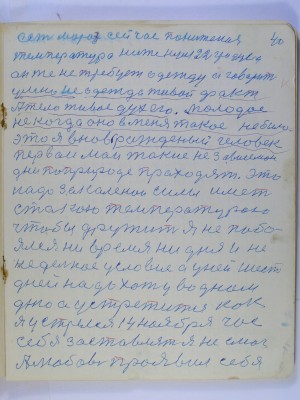 40
есть мороз сейчас понижения
температура ниже нуля 22 градуса
он не требует одежду и говорит
умело не одежда живой факт
А тело живое духа его. Молодое
некогда оно в меня такое небыло
это я вновь рожденый человек
первай май такие не зависимой
дни по природе праходят, это
надо закаленой силы имет
с такою температурою
чтобы дружит я не побо
ялся ни время ни дня и не
неделное условие а у ней шесть
дней надь хожу водном
дню а устретится как
я устрелся 14 ноября час
себя заставлят я не смог
А любовь проявил себя